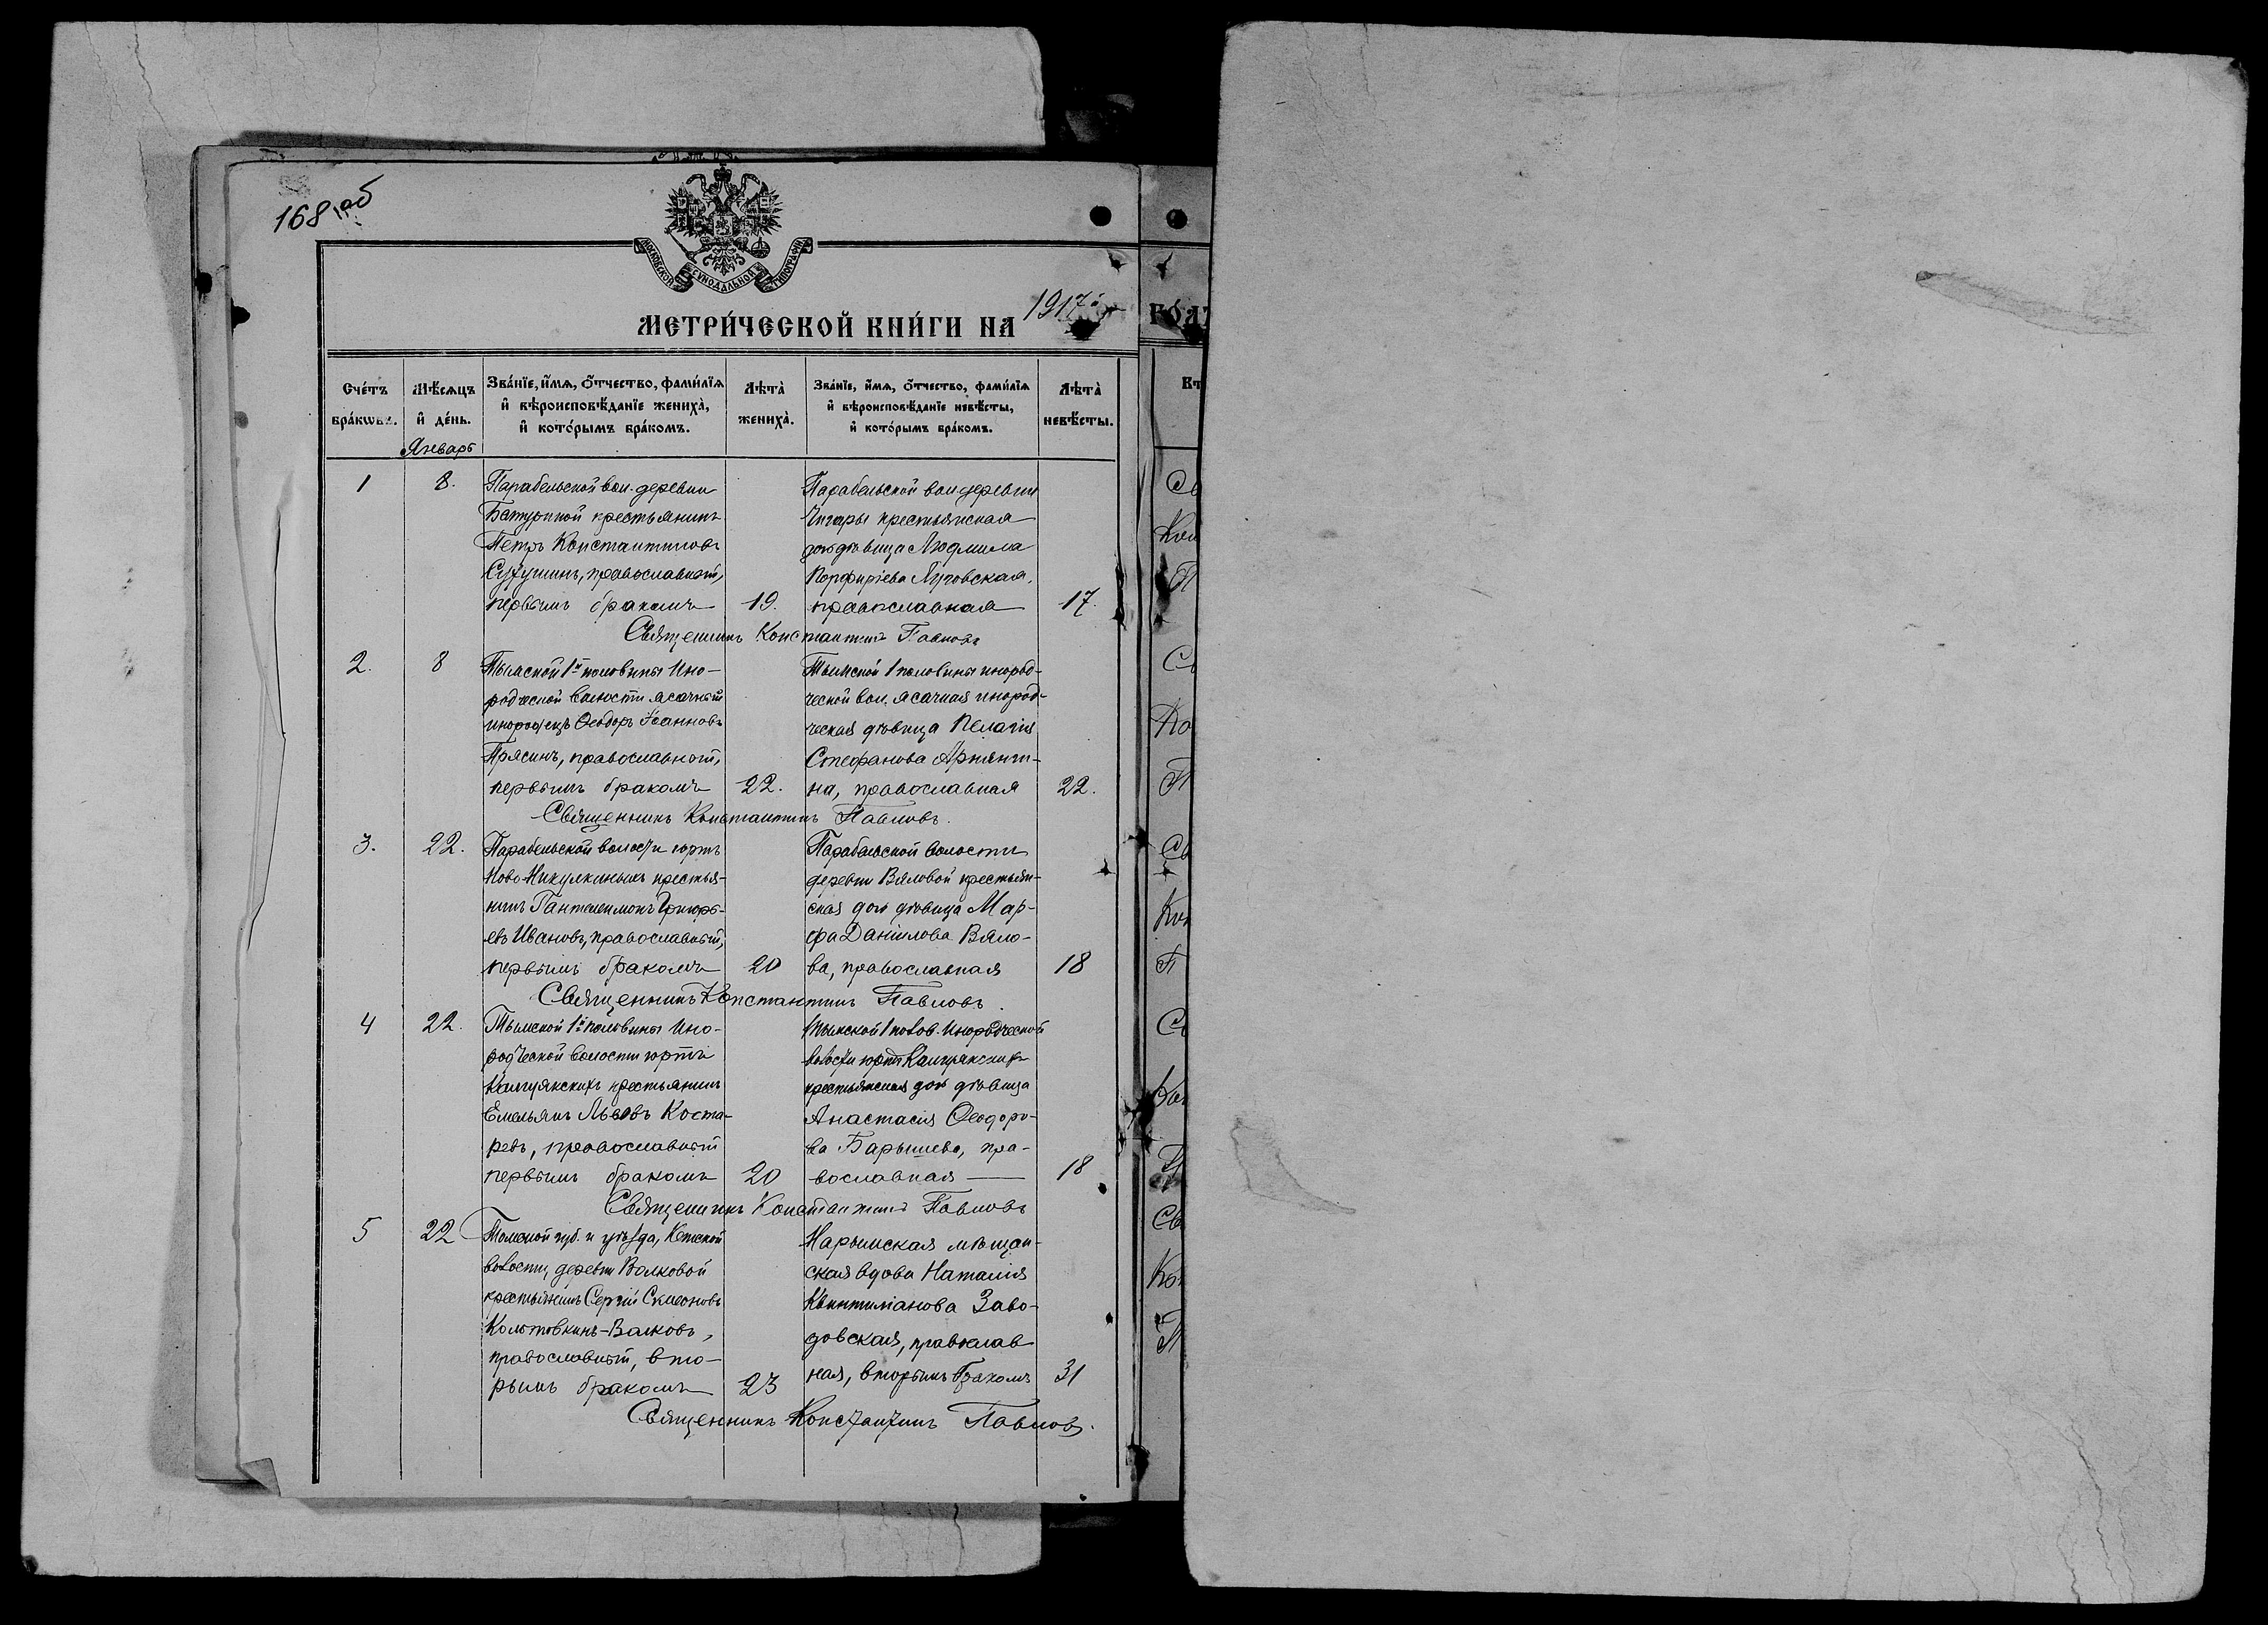 168 об
МОСКОВСКОЙ СѴНОДАЛЬНОЙ ТИПОГРАФІИ
МЕТРИ́ЧЕСКОЙ КНИ́ГИ НА 1917 й ГОДЪ
Сче́тъ бра́кωвъ.
Мѣ́сѧцъ и҆ де́нь.
Зва́нїе, и҆́мѧ, ѻ҆́тчество, фами́лїѧ
и҆ вѣроисповѣ́данїе жениха̀,
и҆ кото́рымъ бра́комъ.
Лѣта̀ жениха̀.
Зва́нїе, и҆́мѧ, ѻ҆́тчество, фами́лїѧ
и҆ вѣроисповѣ́данїе невѣ́сты,
и҆ кото́рымъ бра́комъ.
Лѣта̀ невѣ́сты.
Январь
1
8.
Парабельской вол. деревни
Батуриной крестьянинъ
Петръ Константиновъ
Сухушинъ, православный,
первымъ бракомъ
19.
Парабельской вол. деревни
Чигары крестьянская
дочь дѣвица Людмила
Порфиріева Луговская,
православная
17.
Священникъ Константинъ Павловъ
2.
8
Тымской 1й половины Ино-
родческой волости ясачный
инородецъ Ѳеодоръ Іоанновъ
Прясинъ, православный,
первымъ бракомъ
22.
Тымской 1 половины инород-
ческой вол. ясачная инород-
ческая дѣвица Пелагія
Стефанова Арнянги-
на, православная
22.
Священникъ Константинъ Павловъ.
3.
22.
Парабельской волости юртъ
Ново-Никулкиныхъ крестья-
нинъ Пантелеимонъ Григорь-
евъ Ивановъ, православный,
первымъ бракомъ
20
Парабельской волости
деревни Вяловой крестьян-
ская дочь дѣвица Мар-
фа Даніилова Вяло-
ва, православная
18
Священникъ Константинъ Павловъ.
4
22.
Тымской 1й половины Ино-
родческой волости юртъ
крестьянинъ
Емельянъ Львовъ Коста-
ревъ, православный
первымъ бракомъ
20
Тымской 1 полов. Инородческой
волости юртъ
крестьянская дочь дѣвица
Анастасія Ѳеодоро-
ва Барышева, пра-
вославная
18
Священникъ Константинъ Павловъ
5
22
Томской губ. и уѣзда, Кетской
волости, деревни Волковой
крестьянинъ Сергій Симеоновъ
Колотовкинъ-Валковъ,
православный, вто-
рымъ бракомъ
23
Нарымская мѣщан-
ская вдова Наталія
Квинтиліанова Заво-
довская, православ
ная, вторымъ бракомъ
31
Священникъ Константинъ Павловъ.